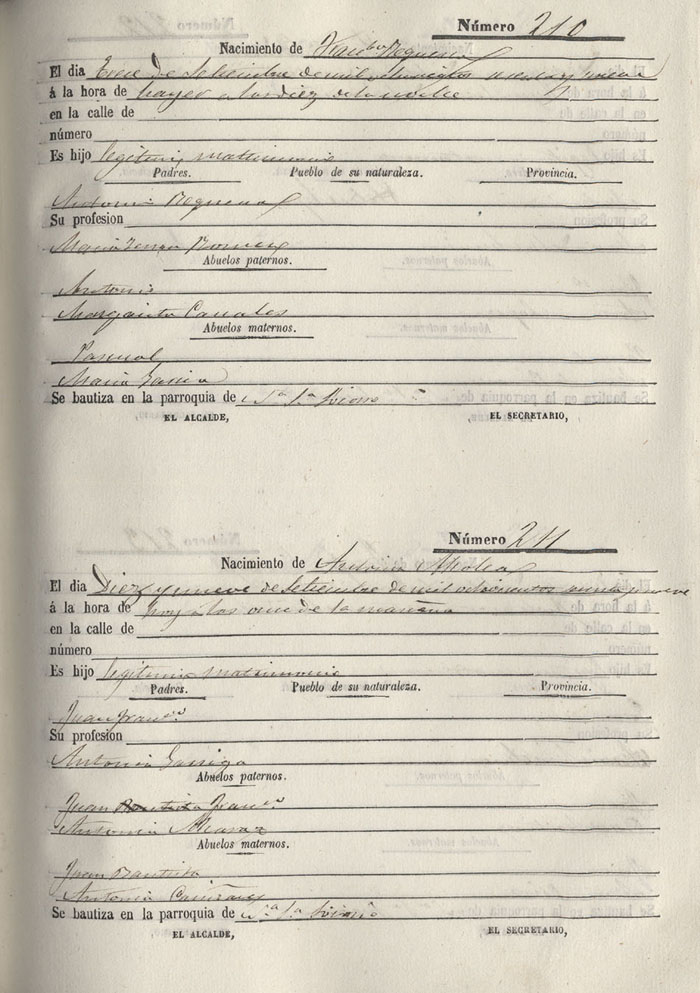 Número 210
Nacimiento de Fran.co Requena
El dia Trece de Setiembre de mil ochocientos cuarenta y nueve
á la hora de hayer a las diez de la noche
en la calle de
número
Es hijo legitimo matrimonio
Padres. Pueblo de su naturaleza. Provincia.
Antonio Requena
Su profesion
Maria Teresa
Abuelos paternos.
Antonio
Margarita Canales
Abuelos maternos.
Pascual
Maria Garcia
Se bautiza en la parroquia de
EL ALCALDE, EL SECRETARIO,
Número 211
Nacimiento de Antonio
El dia Diez y nueve de Setiembre de mil ochocientos cuarenta y nueve
á la hora de hoy a las once de la mañana
en la calle de
número
Es hijo legitimo matrimonio
Padres. Pueblo de su naturaleza. Provincia.
Juan Fran.co
Su profesion
Antonia Garriga
Abuelos paternos.
Juan Fran.co
Antonia Alcaraz
Abuelos maternos.
Juan Bautista
Antonia
Se bautiza en la parroquia de
EL ALCALDE, EL SECRETARIO,